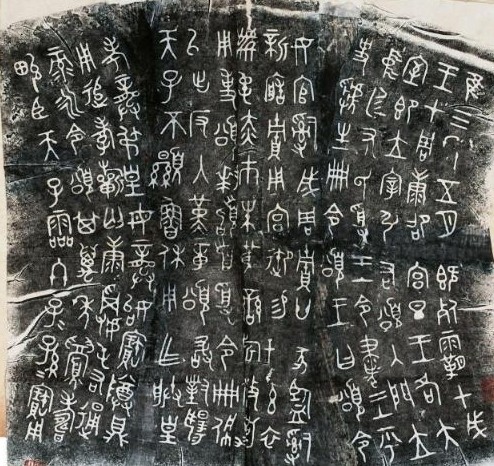 隹三年五月既死霸甲戌
王才周康卲宮旦王各大
室即立宰引右頌入門立
中廷尹氏受王令書王乎
史虢生冊令頌王曰頌令
女官𤔲成周貯廿家監𤔲
新造貯用宮御易女玄衣
黹屯赤巿朱黃鑾旂攸勒
用事頌拜稽首受令冊佩
以出反入堇章頌敢對揚
天子不顯魯休用乍朕皇
考龏弔皇母龏始寶尊鼎
用追孝祈匄康𩔁屯右通
彔永令頌其萬年眉壽
畯臣天子霝冬子子孫孫寶用